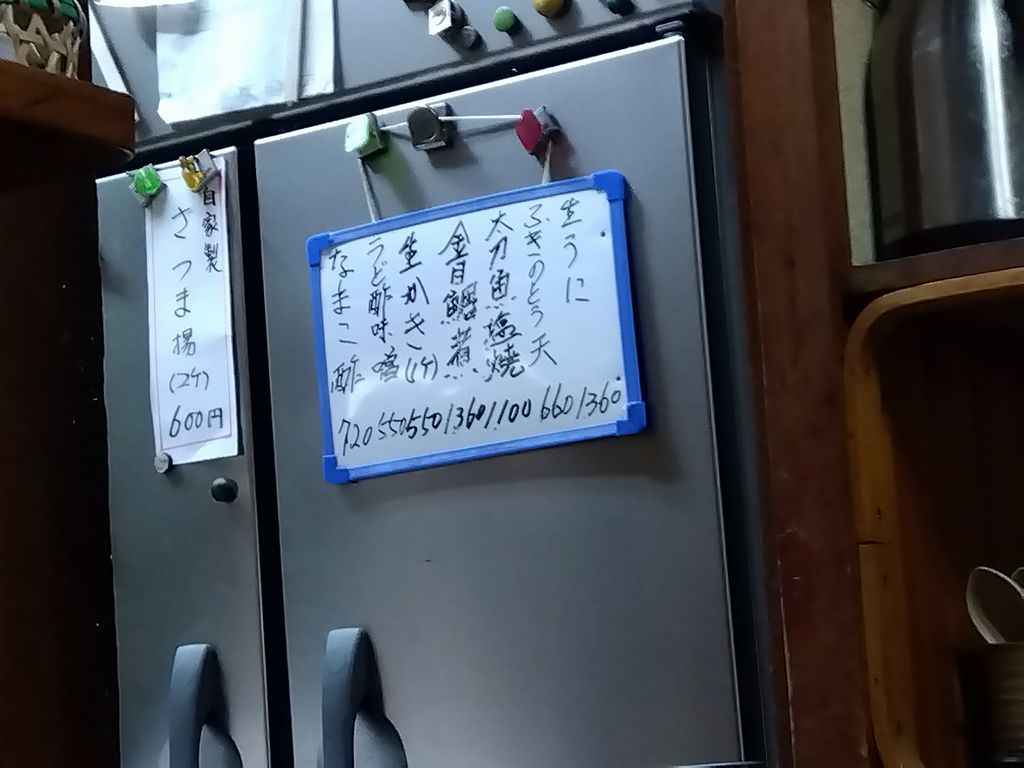 生うに 1360
ふきのとう天 660
太刀魚塩焼 1100
金目鯛煮 1360
生かき(1ケ) 550
うど酢味噌 550
なまこ酢 720
自家製
さつま揚(2ケ)
600円